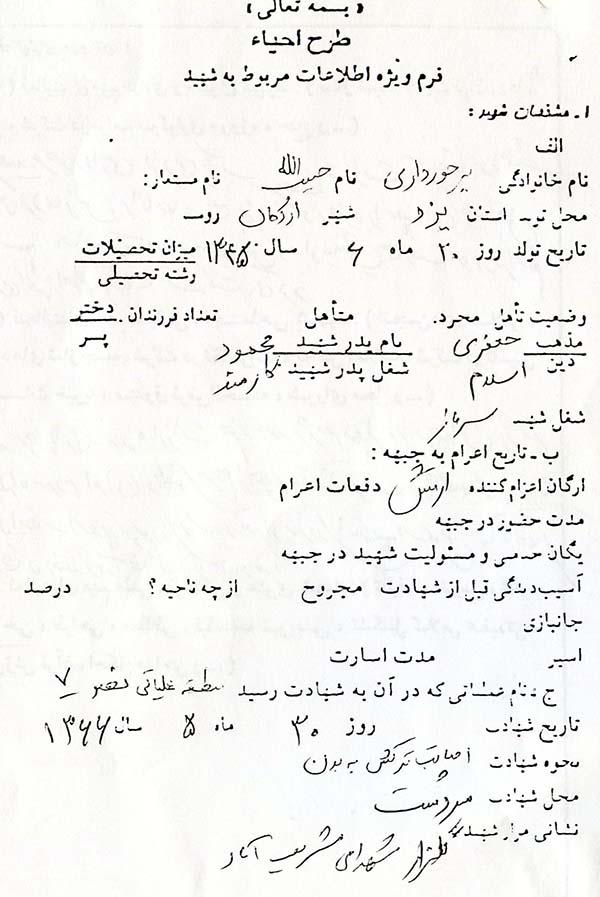 « بسمه تعالی »
طرح احیاء
فرم ویژه اطلاعات مربوط به شهید
۱ ـ مشخصات شهید :
الف
نام خانوادگی برخورداری نام حبیب‌الله نام مستعار:
محل تولد استان یزد شهر اردکان روستا
تاریخ تولد روز ۲۰ ماه ۶ سال ۱۳۴۵ میزان تحصیلات
رشته تحصیلی
وضعیت تأهل مجرد. متأهل تعداد فرزندان. دختر
پسر
مذهب جعفری نام پدر شهید محمود
دین اسلام شغل پدر شهید کارمند
شغل شهید سرباز
ب ـ تاریخ اعزام به جبهه :
ارگان اعزام کننده ارتش دفعات اعزام
مدت حضور در جبهه
یگان خدمتی و مسئولیت شهید در جبهه
آسیب‌دیدگی قبل از شهادت مجروح از چه ناحیه ؟ درصد
جانبازی
اسیر مدت اسارت
ج ـ نام عملیاتی که در آن به شهادت رسید منطقه عملیاتی ۷
تاریخ شهادت روز ۳۰ ماه ۵ سال ۱۳۶۶
نحوه شهادت اصابت ترکش به بدن
محل شهادت سردشت
نشانی مزار شهید گلزار شهدای شریف آباد